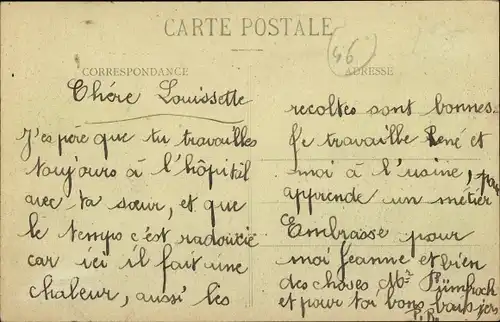 CARTE POSTALE
46
CORRESPONDANCE
ADRESSE
Chére Louissette
J'espére que tu travailles
toujours à l'hôpital
avec ta sœur, et que
le temps c'est radoucie
car ici il fait une
chaleur, aussi les
recoltes sont bonnes
Je travaille René et
moi à l'usine, pour
apprendre un métier
Embrasse pour
moi Jeanne et bien
des choses Mr
et pour toi bons baisers